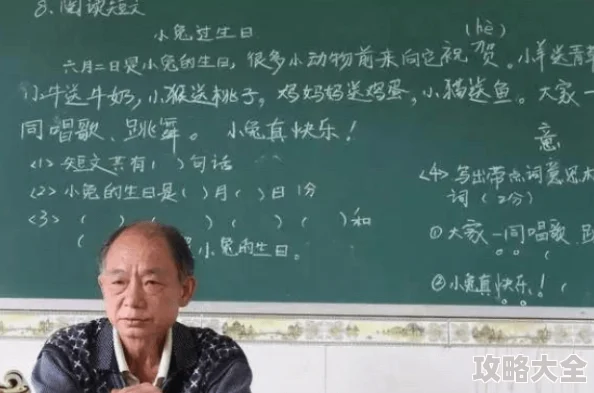 8.阅读短文
小兔过生日
(hè)
六月二日是小兔的生日,很多小动物前来向它祝贺。小羊送青草
小牛送牛奶,小猴送桃子,鸡妈妈送鸡蛋,小猫送鱼。大家一
同唱歌、跳舞。小兔真快乐!
意
<1>短文共有( )句话
<2>小兔的生日是( )月( )日 1分
<3>( )( )( )( )( )和
( 小兔的生日。
<4>写出带点词意思
词(2分)
①大家一同唱歗、
②小兔真快乐!(
攻略大全